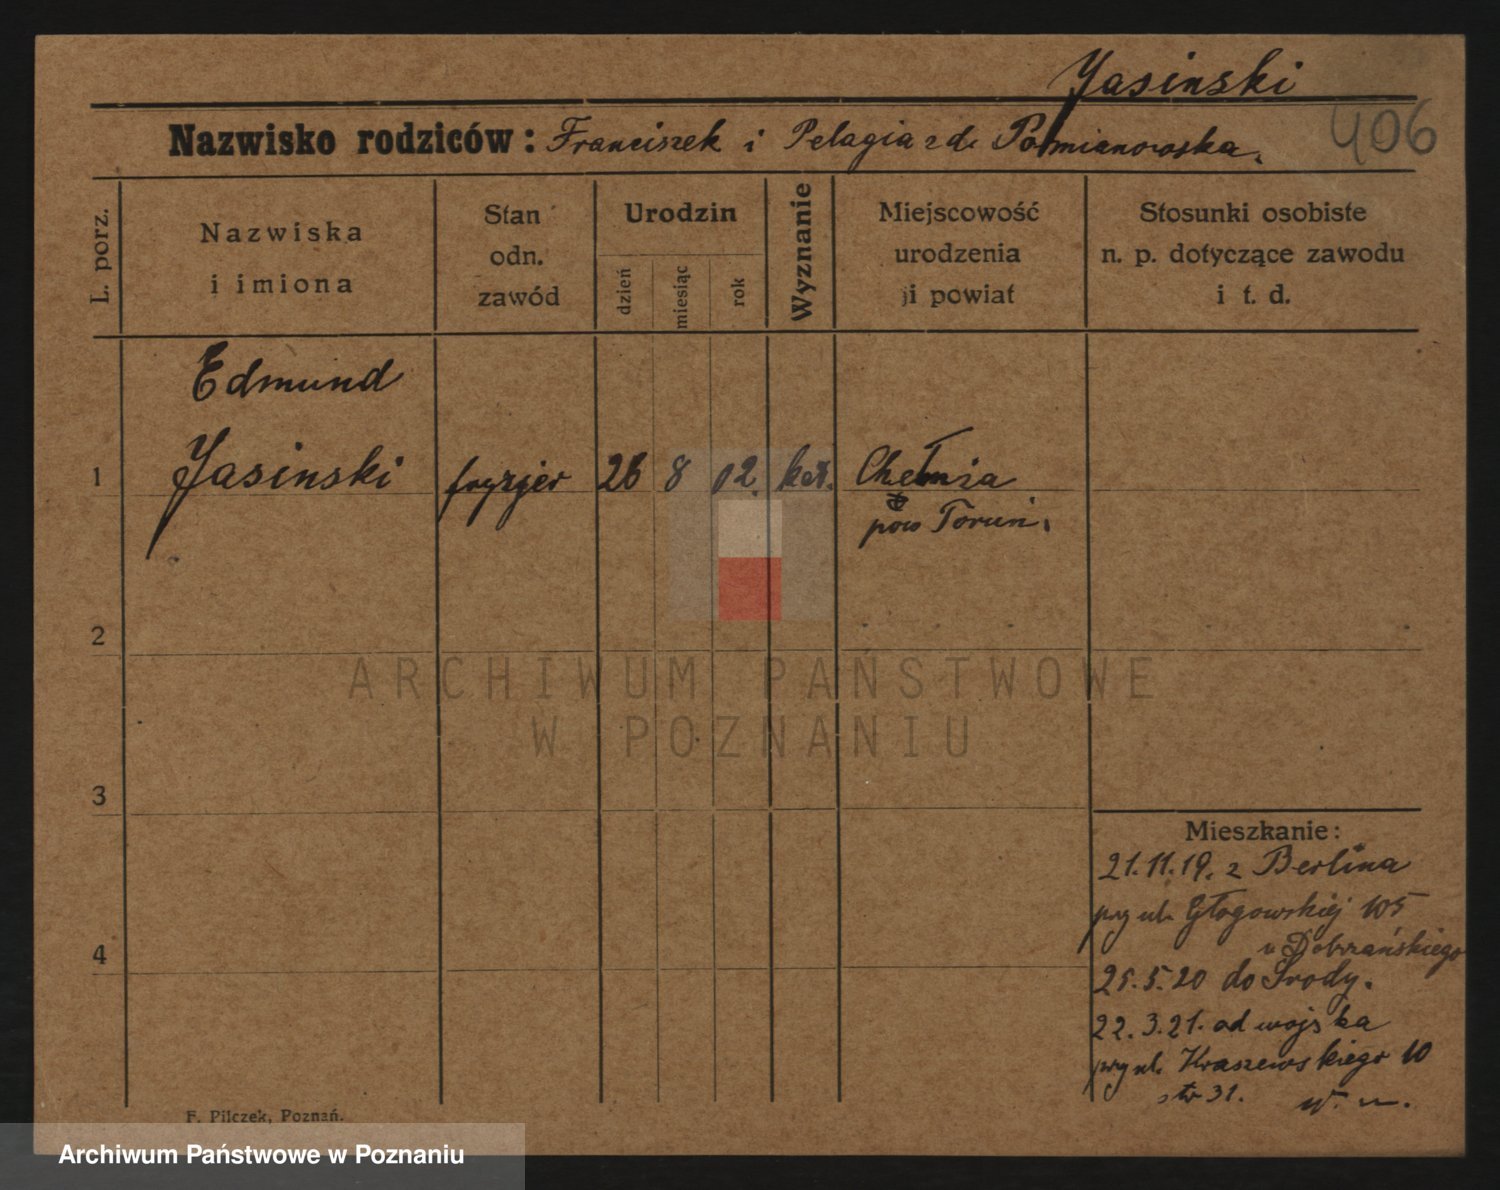 Jasinski
406
Nazwisko rodziców: Franciszek i Pelagia z d. Pomianowska.
L. porz.
Nazwiska
i imiona
Stan
odn.
zawód
Urodzin
dzień
miesiąc
rok
Wyznanie
Miejscowość
urodzenia
i powiat
Stosunki osobiste
n. p. dotyczące zawodu
i t. d.
Edmund
1 Jasinski fryzjer 26 8 02. kat. Chełmża
pow Toruń.
2
ARCHIWUM PAŃSTWOWE
W POZNANIU
3
Mieszkanie:
21.11.19. z Berlina
przy ul. Głogowskiej 105
u Dobrzańskiego
4
25.5.20 do Środy.
22.3.21. od wojska
przy ul. Kraszewskiego 10
str 31.
F. Pilczek, Poznań.
Archiwum Państwowe w Poznaniu